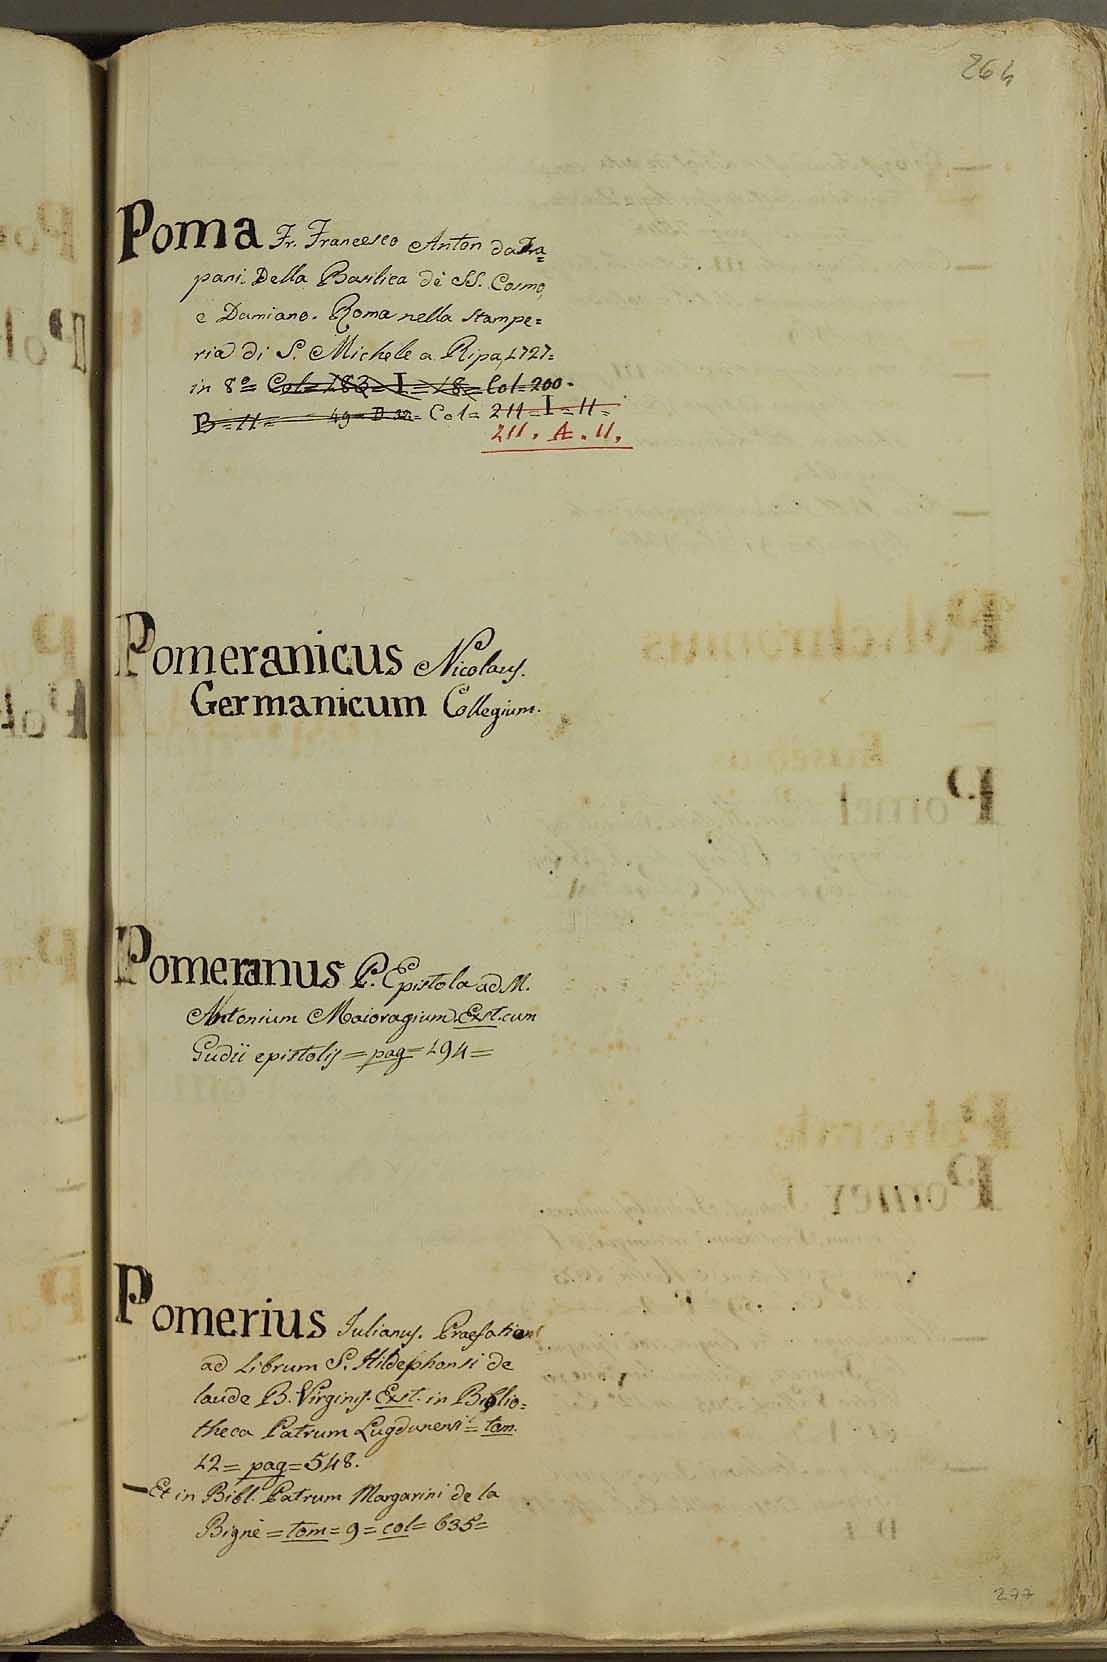 264
Poma Fr. Francesco Anton da Tra=
pani. Della Basilica de SS. Cosmo,
e Damiano. Roma nella Stampe=
ria di S. Michele a Ripa, 1727=
in 8º= Col= 183= I = 18= Col= 200.
B= 11= 49= = Col= 211= I= 11=
211. A. 11.
Pomeranicus Nicolaus.
Germanicum Collegium.
Pomeranus P. Epistola ad M.
Antonium Maioragium. Ext. cum
Gudii epistolis = pag= 194=
Pomerius Julianus. Praefationes
ad Librum S. Hildephonsi de
laude B. Virginis. Ext. in Biblio=
theca Patrum Lugdunensi= tom.
12= pag= 548.
— Et in Bibl. Patrum Margarini de la
Bignè = tom= 9= col= 635=
277